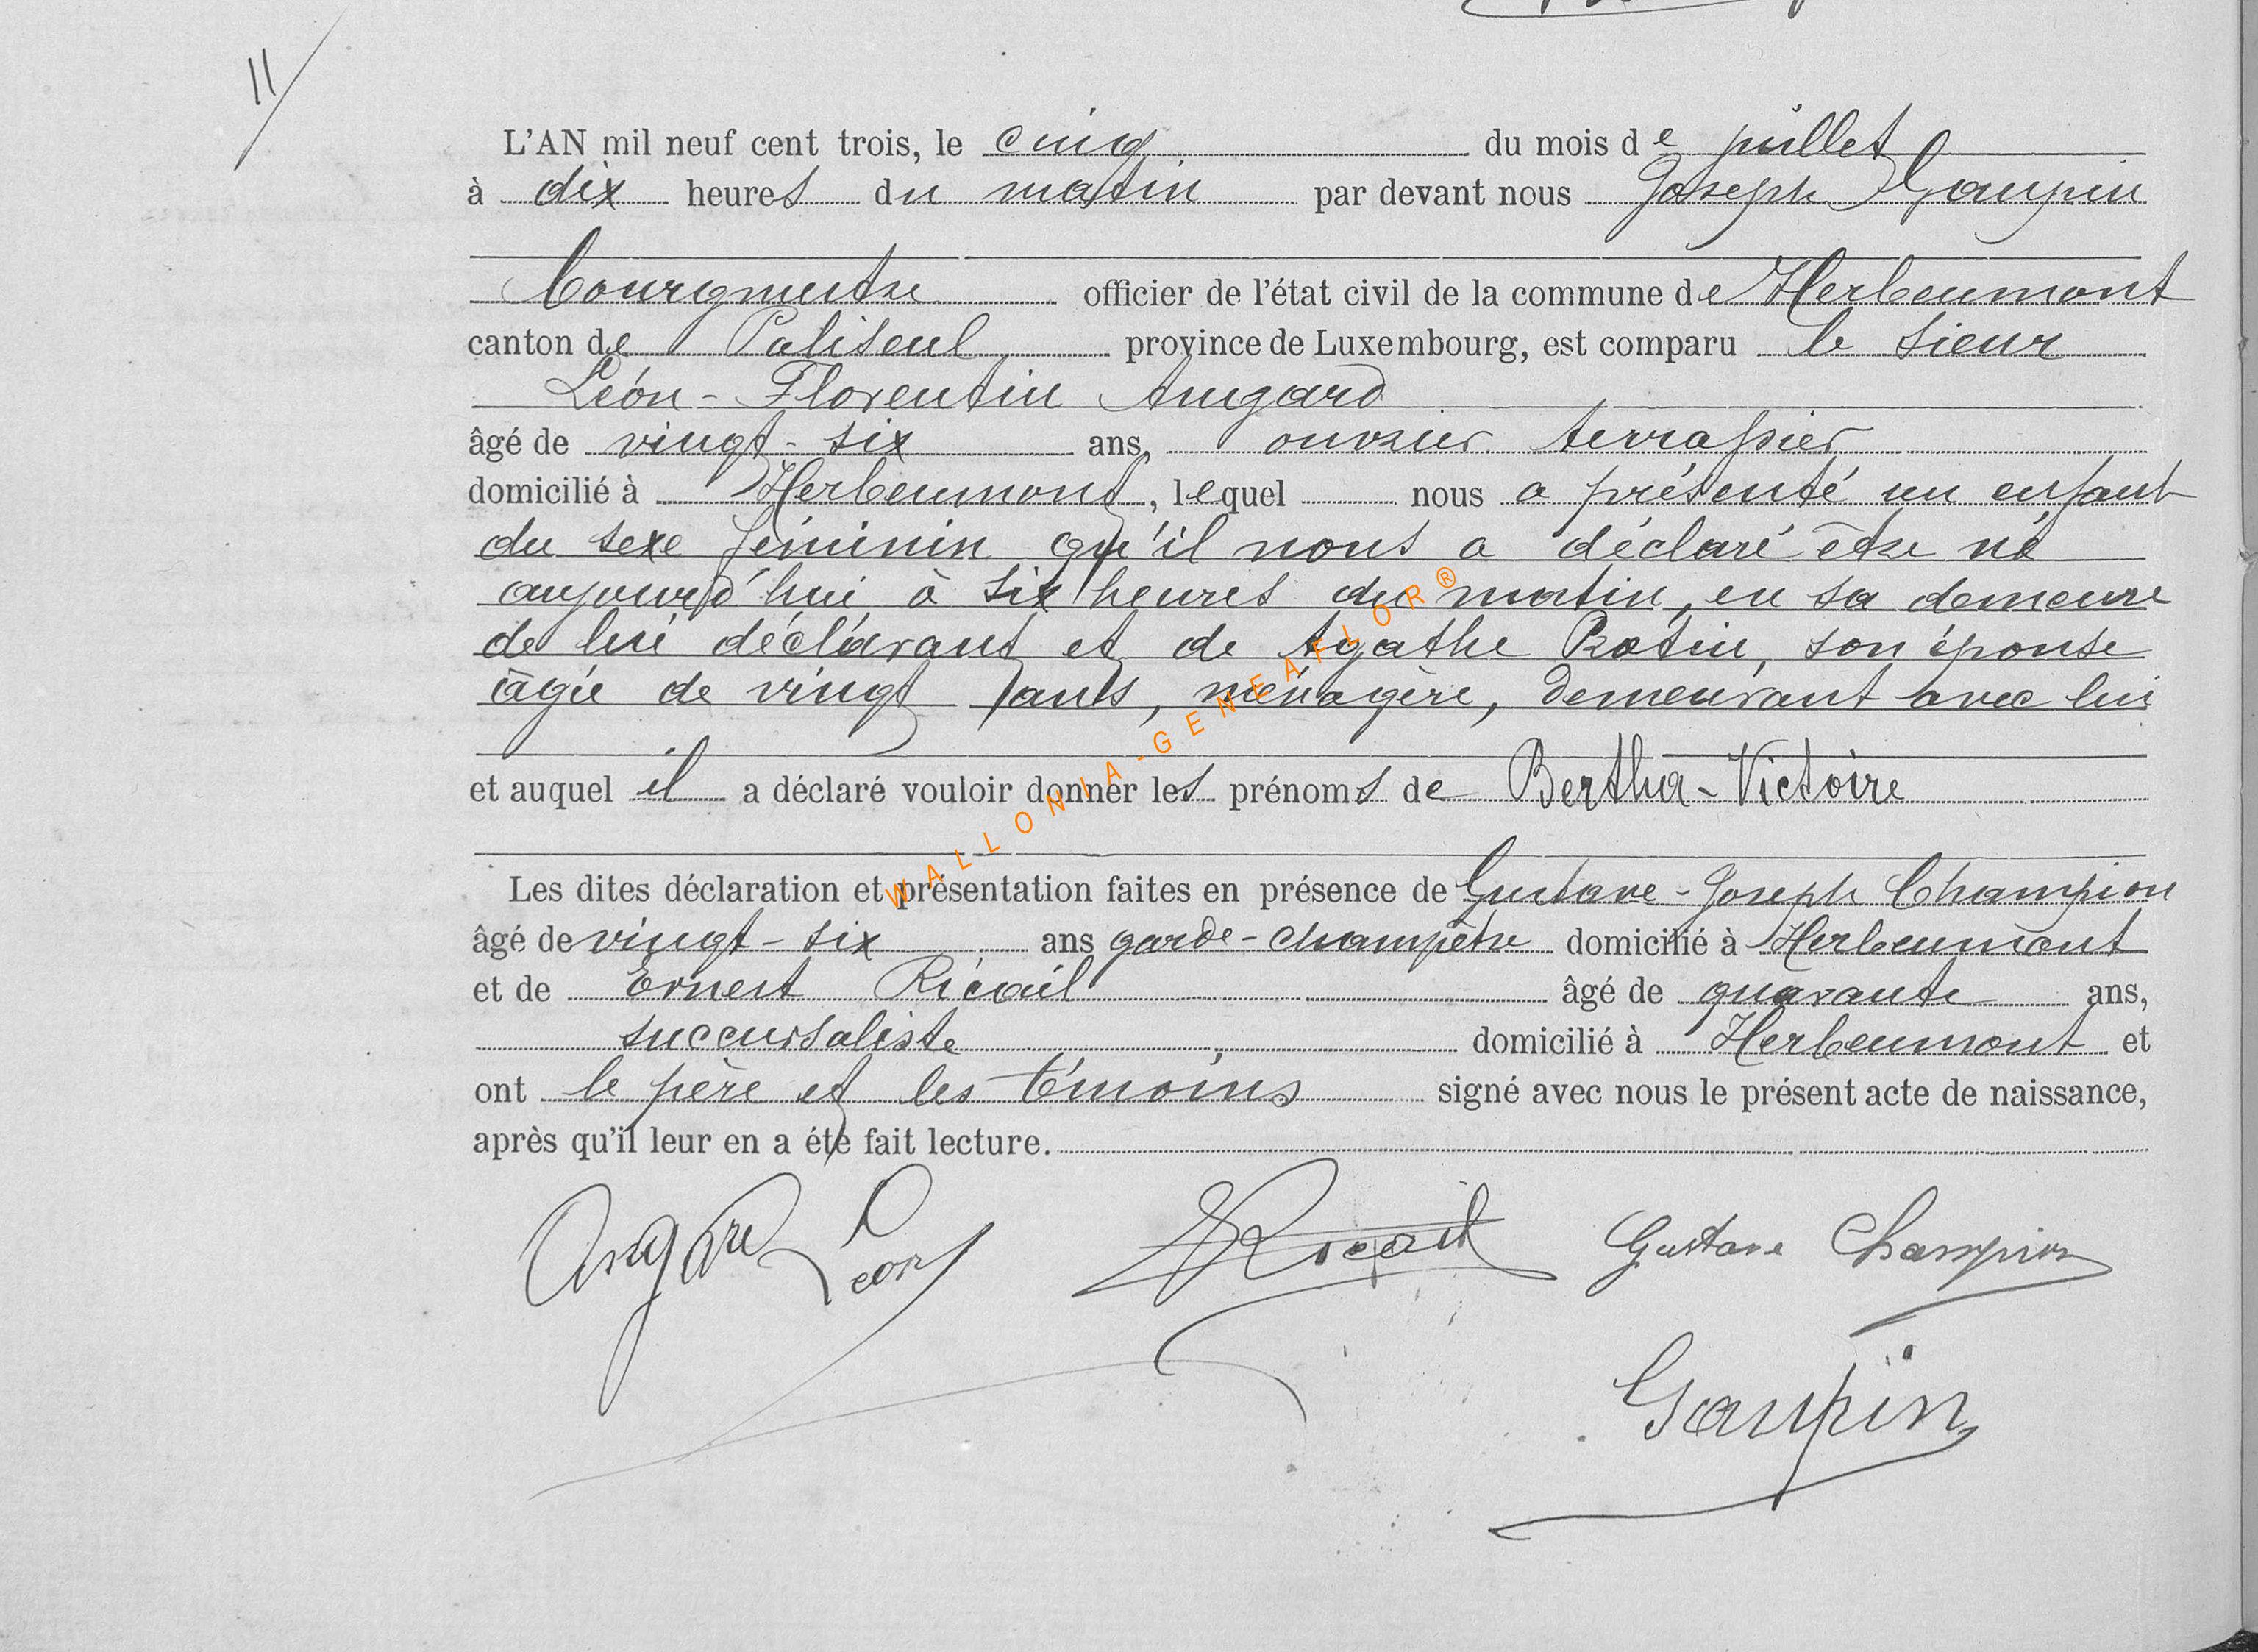 11
L'AN mil neuf cent trois, le cinq du mois de juillet
à dix heures du matin par devant nous Joseph Gaupin
bourgmestre officier de l'état civil de la commune de Herbeumont
canton de Paliseul province de Luxembourg, est comparu le sieur
Léon-Florentin Angard
âgé de vingt-six ans, ouvrier terrassier
domicilié à Herbeumont, lequel nous a présenté un enfant
du sexe féminin qu'il nous a déclaré être né
aujourd'hui à six heures du matin, en sa demeure
de lui déclarant et de Agathe Rotin, son épouse
âgée de vingt ans, ménagère, demeurant avec lui
et auquel il a déclaré vouloir donner les prénoms de Bertha-Victoire
Les dites déclaration et présentation faites en présence de Gustave-Joseph Champion
âgé de vingt-six ans garde-champêtre domicilié à Herbeumont
et de Ernest Ricail âgé de quarante ans,
succursaliste domicilié à Herbeumont et
ont le père et les témoins signé avec nous le présent acte de naissance,
après qu'il leur en a été fait lecture.
Angard Léon E Ricail Gustave Champion
Gaupin
WALLONIA-GENEAFLOR®